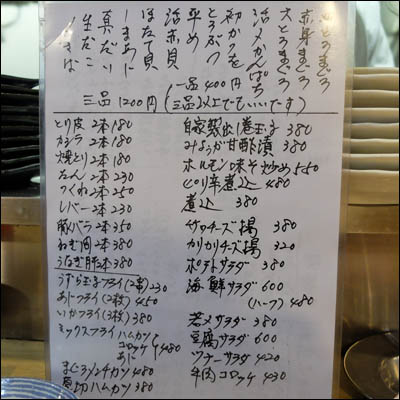 赤身まぐろ
大とろまぐろ
活〆かんぱち
初かつを
とろぶつ
平め
活赤貝
ほたて貝
しまあじ
真だい
生だこ
一品400円
三品1200円(三品以上でもいいです)
とり皮 2本 180
カシラ 2本 180
焼とり 2本 180
たん 2本 230
つくね 2本 250
レバー 2本 230
豚バラ 2本 350
ねぎ肉 2本 380
うなぎ肝 2本 380
うずら玉子フライ(2串)230
あじフライ(2枚)450
いかフライ(3枚)380
ミックスフライ ハムカツ
コロッケ 480
あじ
まぐろメンチカツ 480
厚切ハムカツ 380
自家製出し巻玉子 380
みょうが甘酢漬 380
ホルモン味そ炒め 550
ピリ辛煮込 480
煮込 380
サワチーズ揚 380
カリカリチーズ揚 320
ポテトサラダ 380
海鮮サラダ 600
(ハーフ) 480
若メサラダ 380
豆腐サラダ 600
ツナーサラダ 420
牛肉コロッケ 430